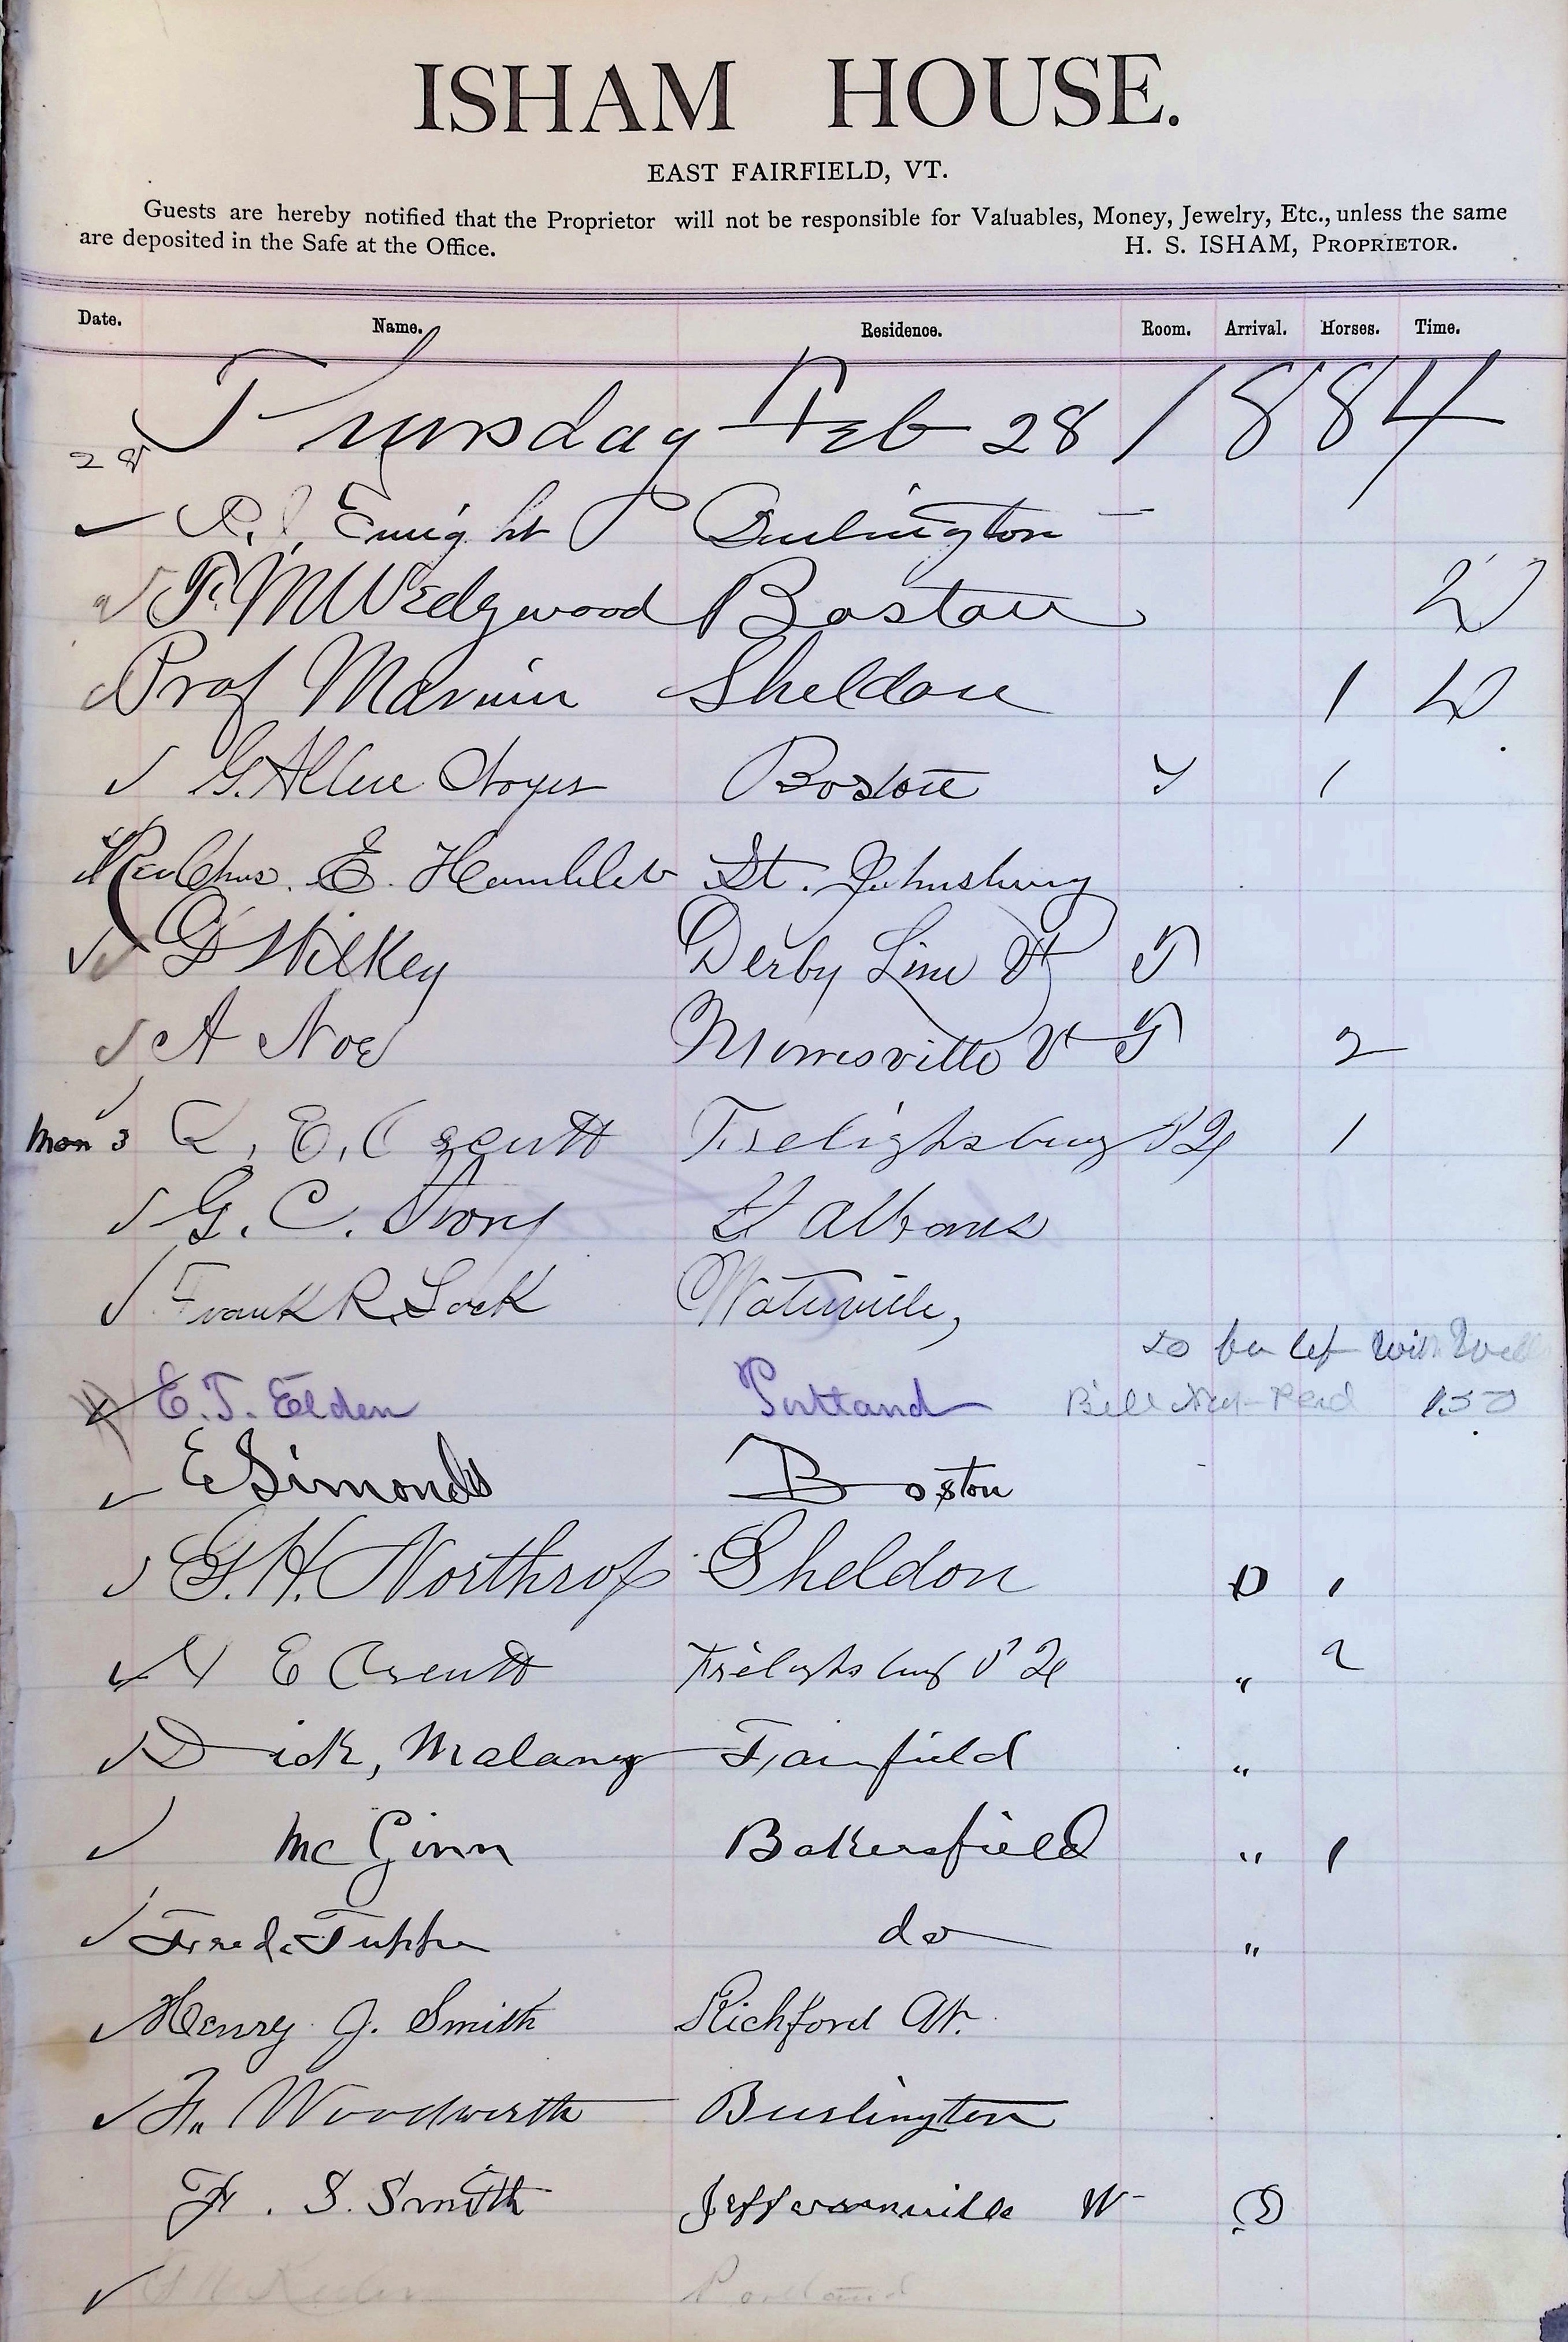 ISHAM HOUSE.
EAST FAIRFIELD, VT.
Guests are hereby notified that the Proprietor will not be responsible for Valuables, Money, Jewelry, Etc., unless the same
are deposited in the Safe at the Office. H. S. ISHAM, PROPRIETOR.
Date. Name. Residence. Room. Arrival. Horses. Time.
28 Thursday Feb 28 1884
Burlington
F. M Wedgwood Boston
Prof Marvin Sheldon 1
G. Allen Noyes Boston 1
Rev Chas. E. Hamblet St. Johnsbury
Wilkey Derby Line Vt
A Noe Morrisville Vt 2
Mon 3 E. Frelighsburg P2 1
G. C. Story St Albans
Frank R. Lock Waterville,
E. T. Elden Portland Bill Not Paid 1.50
E Simonds Boston
G. H. Northrop Sheldon D 1
E Frelighsburg P 2 " 2
Dick, Malaney Fairfield "
Mc Ginn Bakersfield " 1
Fred. Tupper do "
Henry J. Smith Richford Vt.
F. Woodworth Burlington
F. S. Smith Jeffersonville Vt D
Portland